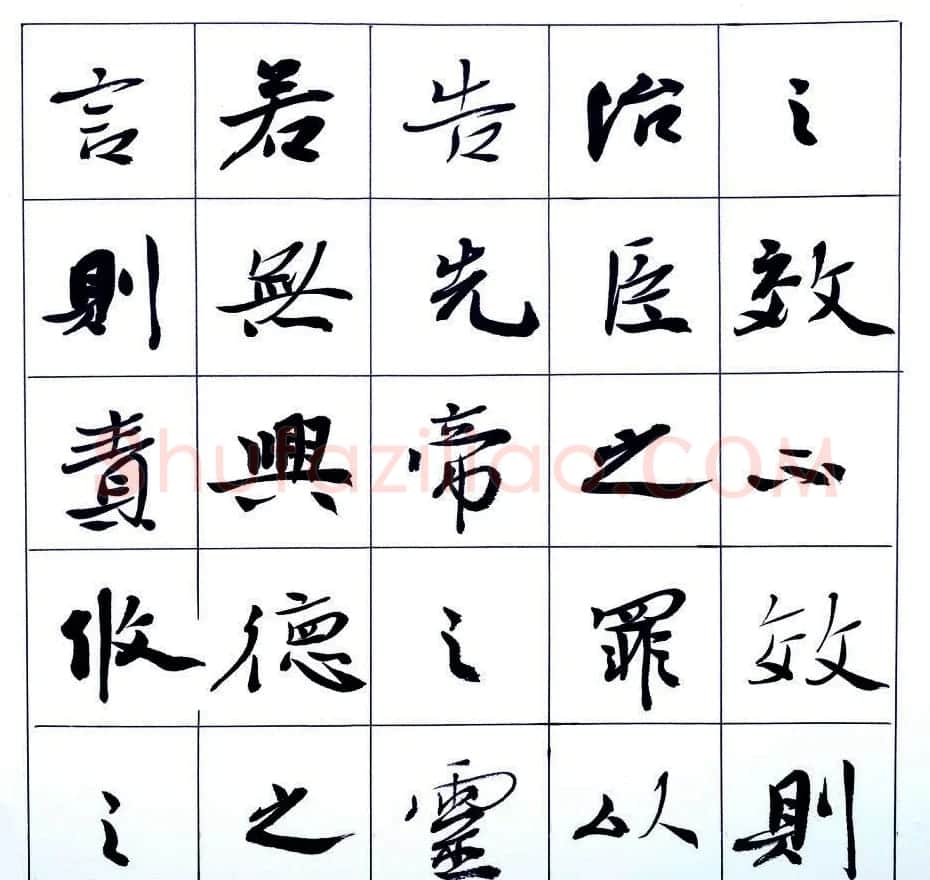 之效不效則
治臣之罪以
告先帝之靈
若無興德之
言則責攸之
Shufaziliao.COM